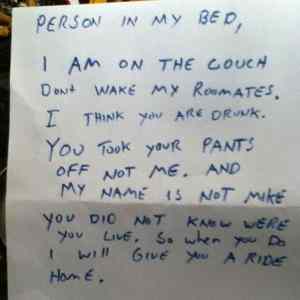 PERSON IN MY BED,
I AM ON THE COUCH
DONT WAKE MY ROOMATES.
I THINK YOU ARE DRUNK.
YOU TOOK YOUR PANTS
OFF NOT ME. AND
MY NAME IS NOT MIKE
YOU DID NOT KNOW WERE
YOU LIVE. SO WHEN YOU DO
I WILL GIVE YOU A RIDE
HOME.